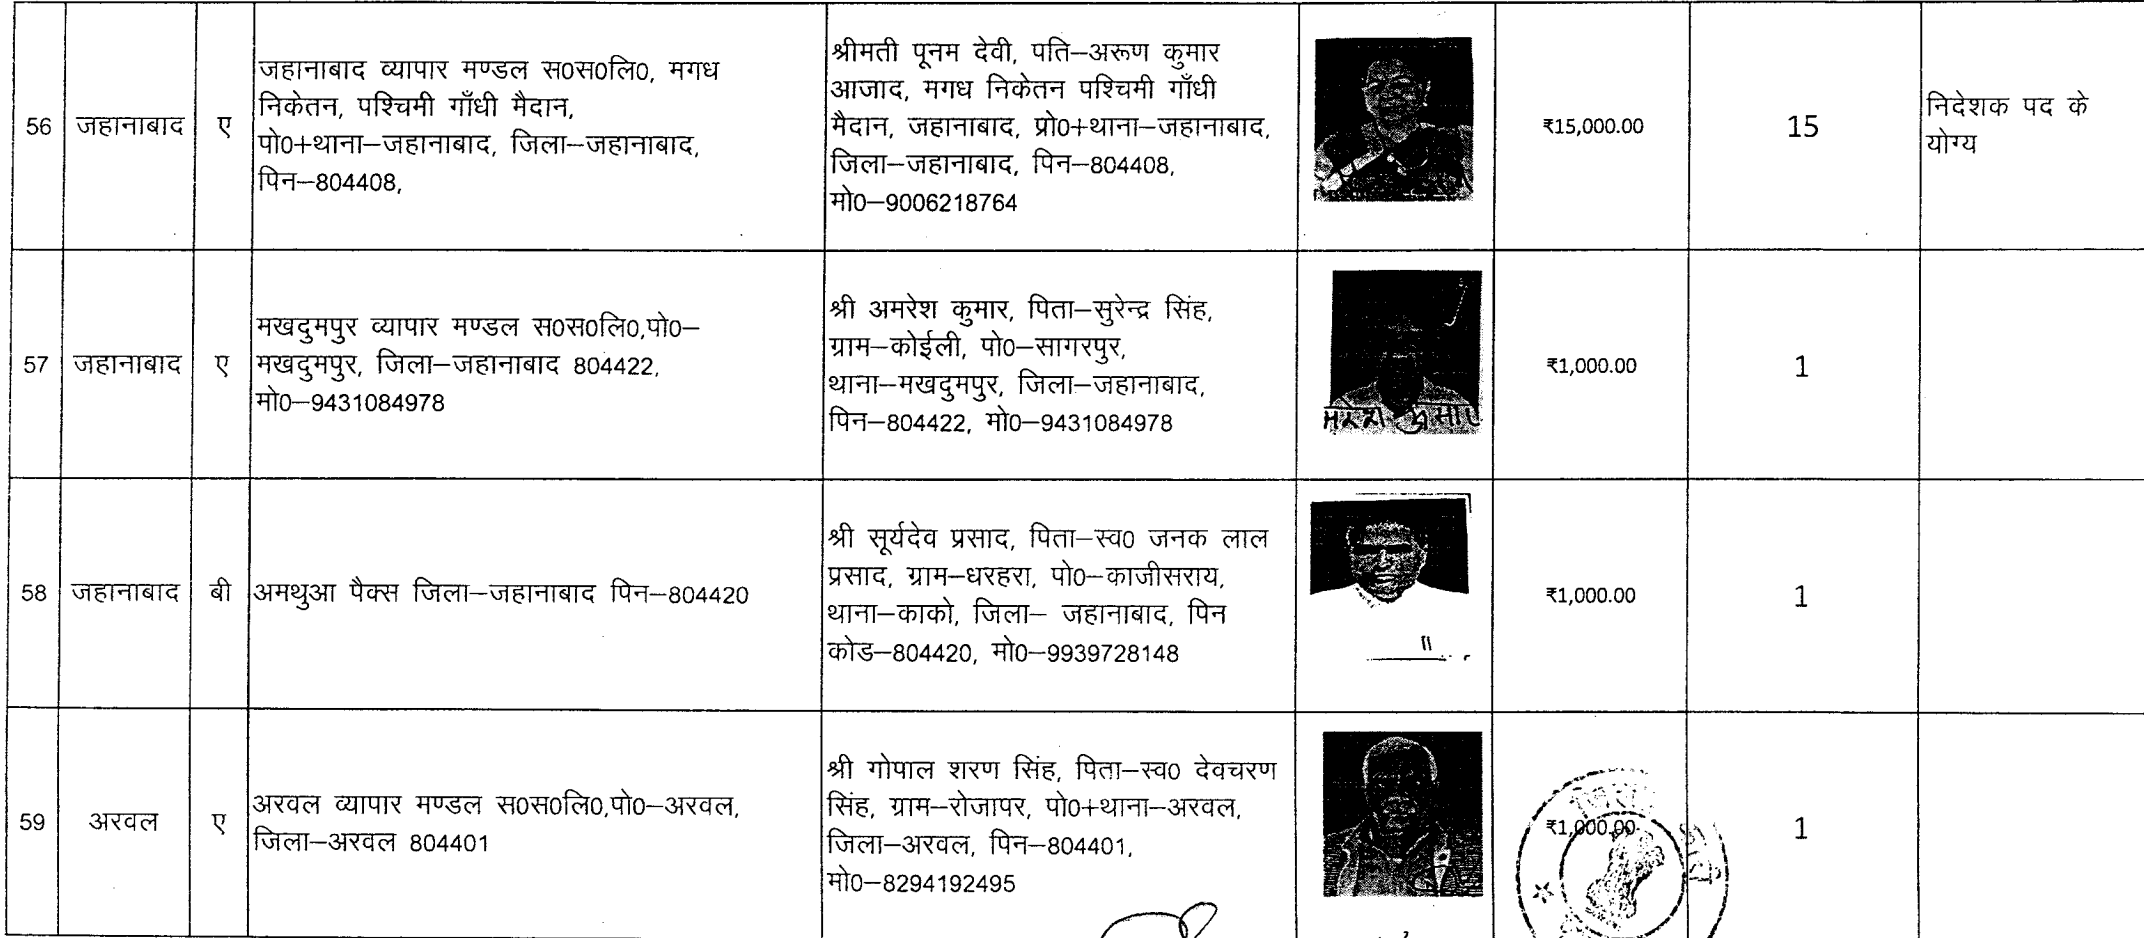 56
जहानाबाद
ए
जहानाबाद व्यापार मण्डल स0स0लि0, मगध
निकेतन, पश्चिमी गाँधी मैदान,
पो0+थाना–जहानाबाद, जिला–जहानाबाद,
पिन–804408,
श्रीमती पूनम देवी, पति–अरूण कुमार
आजाद, मगध निकेतन पश्चिमी गाँधी
मैदान, जहानाबाद, प्रो0+थाना–जहानाबाद,
जिला–जहानाबाद, पिन–804408,
मो0–9006218764
₹15,000.00
15
निदेशक पद के
योग्य
57
जहानाबाद
ए
मखदुमपुर व्यापार मण्डल स0स0लि0,पो0–
मखदुमपुर, जिला–जहानाबाद 804422,
मो0–9431084978
श्री अमरेश कुमार, पिता–सुरेन्द्र सिंह,
ग्राम–कोईली, पो0–सागरपुर,
थाना–मखदुमपुर, जिला–जहानाबाद,
पिन–804422, मो0–9431084978
मरेश कुमार
₹1,000.00
1
58
जहानाबाद
बी
अमथुआ पैक्स जिला–जहानाबाद पिन–804420
श्री सूर्यदेव प्रसाद, पिता–स्व0 जनक लाल
प्रसाद, ग्राम–धरहरा, पो0–काजीसराय,
थाना–काको, जिला– जहानाबाद, पिन
कोड–804420, मो0–9939728148
₹1,000.00
1
59
अरवल
ए
अरवल व्यापार मण्डल स0स0लि0,पो0–अरवल,
जिला–अरवल 804401
श्री गोपाल शरण सिंह, पिता–स्व0 देवचरण
सिंह, ग्राम–रोजापर, पो0+थाना–अरवल,
जिला–अरवल, पिन–804401,
मो0–8294192495
₹1,000.00
1